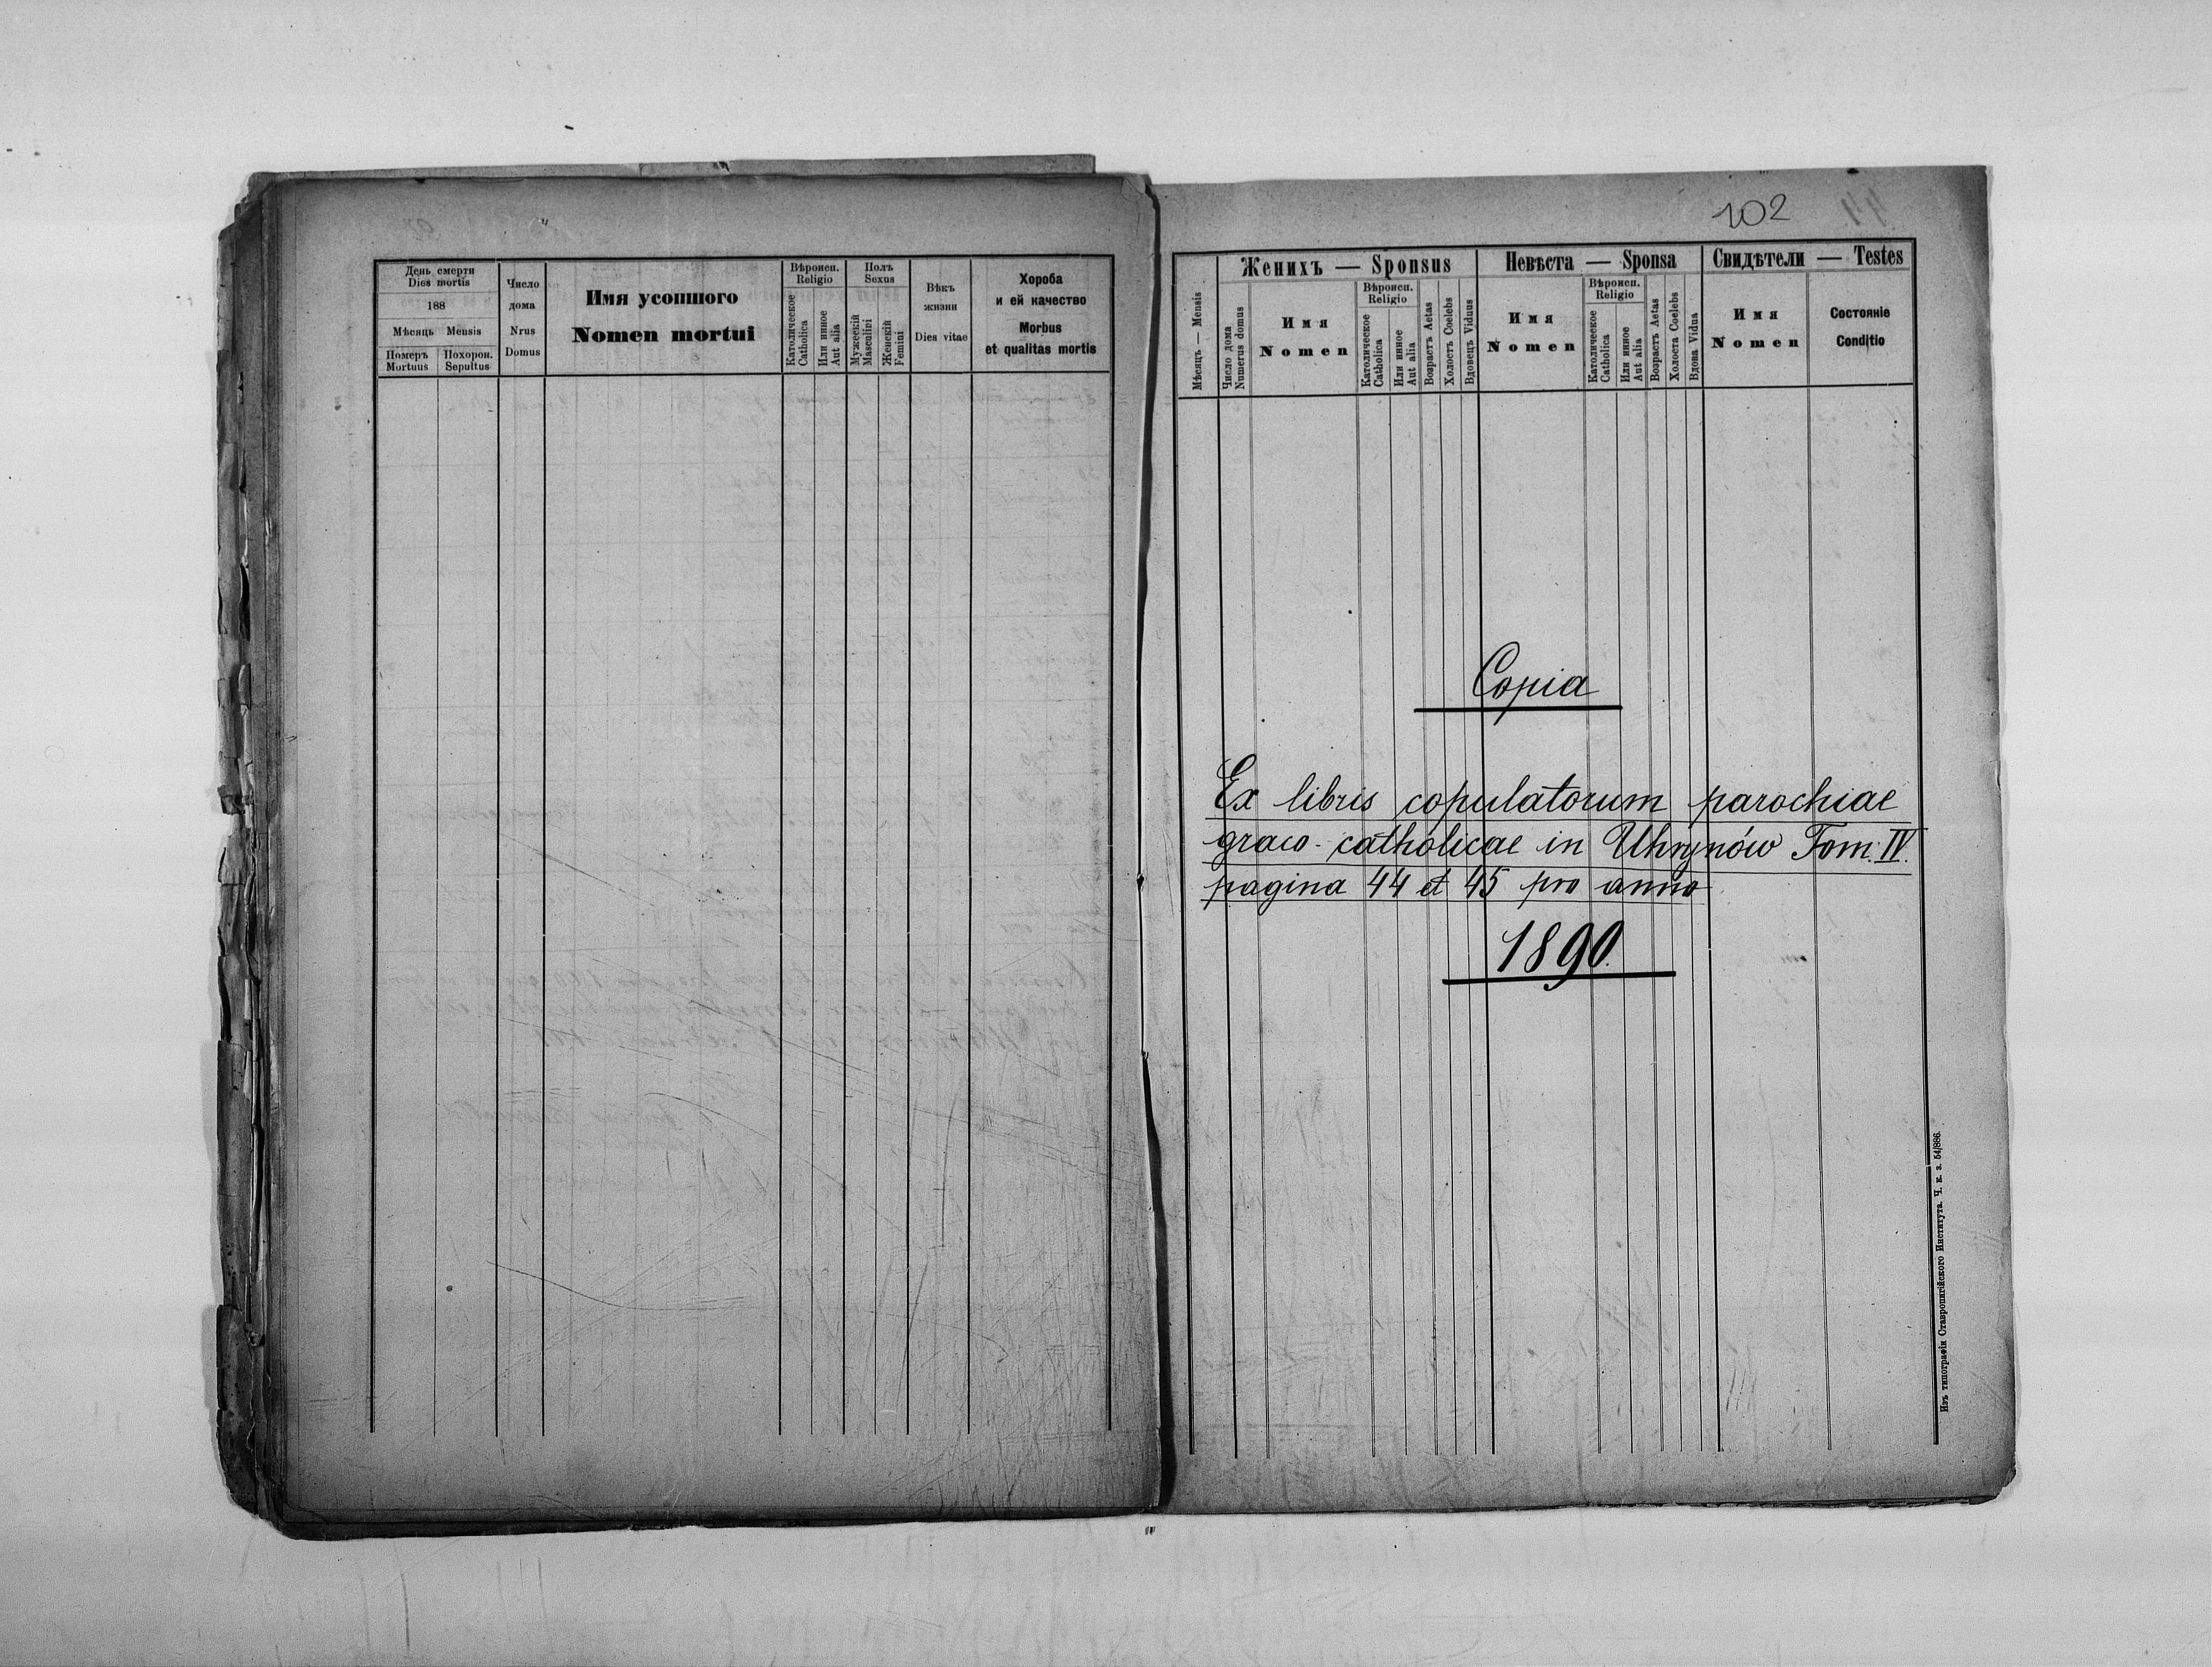 День смерти
Dies mortis
188
Мѣсяць Mensis
Померъ Похорон.
Mortuus Sepultus
Число
дома
Nrus
Domus
Имя усопшого
Nomen mortui
Вѣроисп.
Religio
Католическое
Catholica
Или инное
Aut alia
Полъ
Sexus
Мужескій
Masculini
Женскій
Femini
Вѣкъ
жизни
Dies vitae
Хороба
и ей качество
Morbus
et qualitas mortis
102
Мѣсяць — Mensis
Женихъ — Sponsus
Число дома
Numerus domus
Имя
Nomen
Вѣроисп.
Religio
Католическое
Catholica
Или инное
Aut alia
Возрастъ Aetas
Холостъ Coelebs
Вдовець Viduus
Невѣста — Sponsa
Имя
Nomen
Вѣроисп.
Religio
Католическое
Catholica
Или инное
Aut alia
Возрастъ Aetas
Холоста Coelebs
Вдова Vidua
Свидѣтели — Testes
Имя
Nomen
Состояніе
Conditio
Copia
Ex libris copulatorum parochiae
graco-catholicae in Uhrynów Tom. IV.
pagina 44 et 45 pro anno
1890.
Изъ типографіи Ставропигійского Института. Ч. к. з. 54/886.